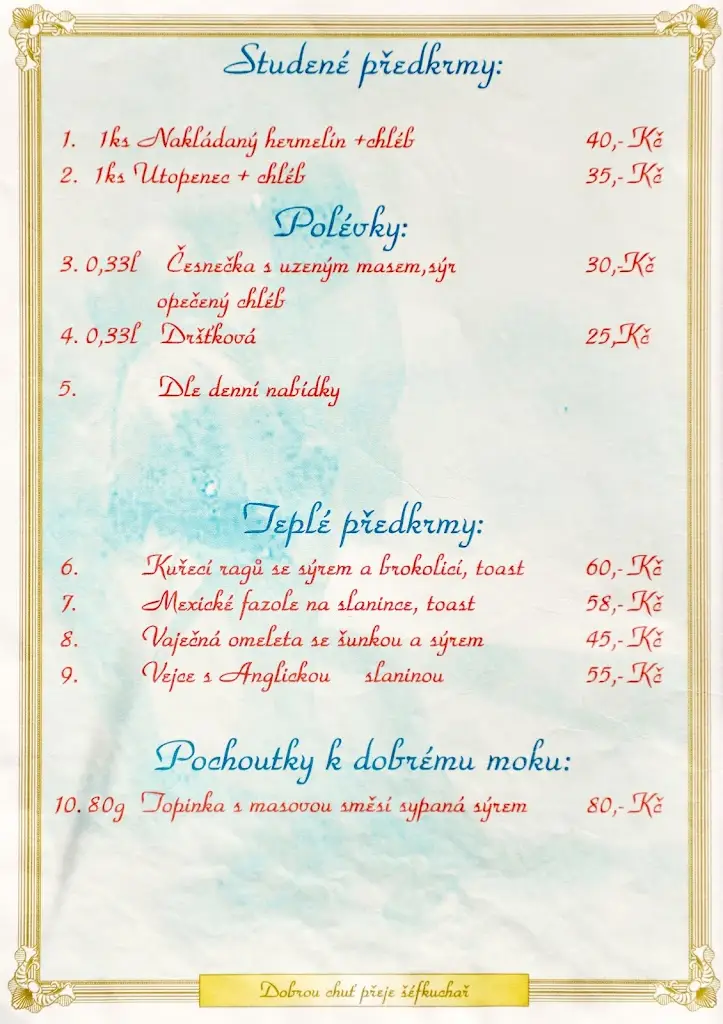 Studené předkrmy:
1. 1ks Nakládaný hermelín +chléb 40,- Kč
2. 1ks Utopenec + chléb 35,- Kč
Polévky:
3. 0,33l Česnečka s uzeným masem,sýr 30,-Kč
opečený chléb
4. 0,33l Dršťková 25,Kč
5. Dle denní nabídky
Teplé předkrmy:
6. Kuřecí ragů se sýrem a brokolicí, toast 60,- Kč
7. Mexické fazole na slanince, toast 58,- Kč
8. Vaječná omeleta se šunkou a sýrem 45,- Kč
9. Vejce s Anglickou slaninou 55,- Kč
Pochoutky k dobrému moku:
10. 80g Topinka s masovou směsí sypaná sýrem 80,- Kč
Dobrou chuť přeje šéfkuchař